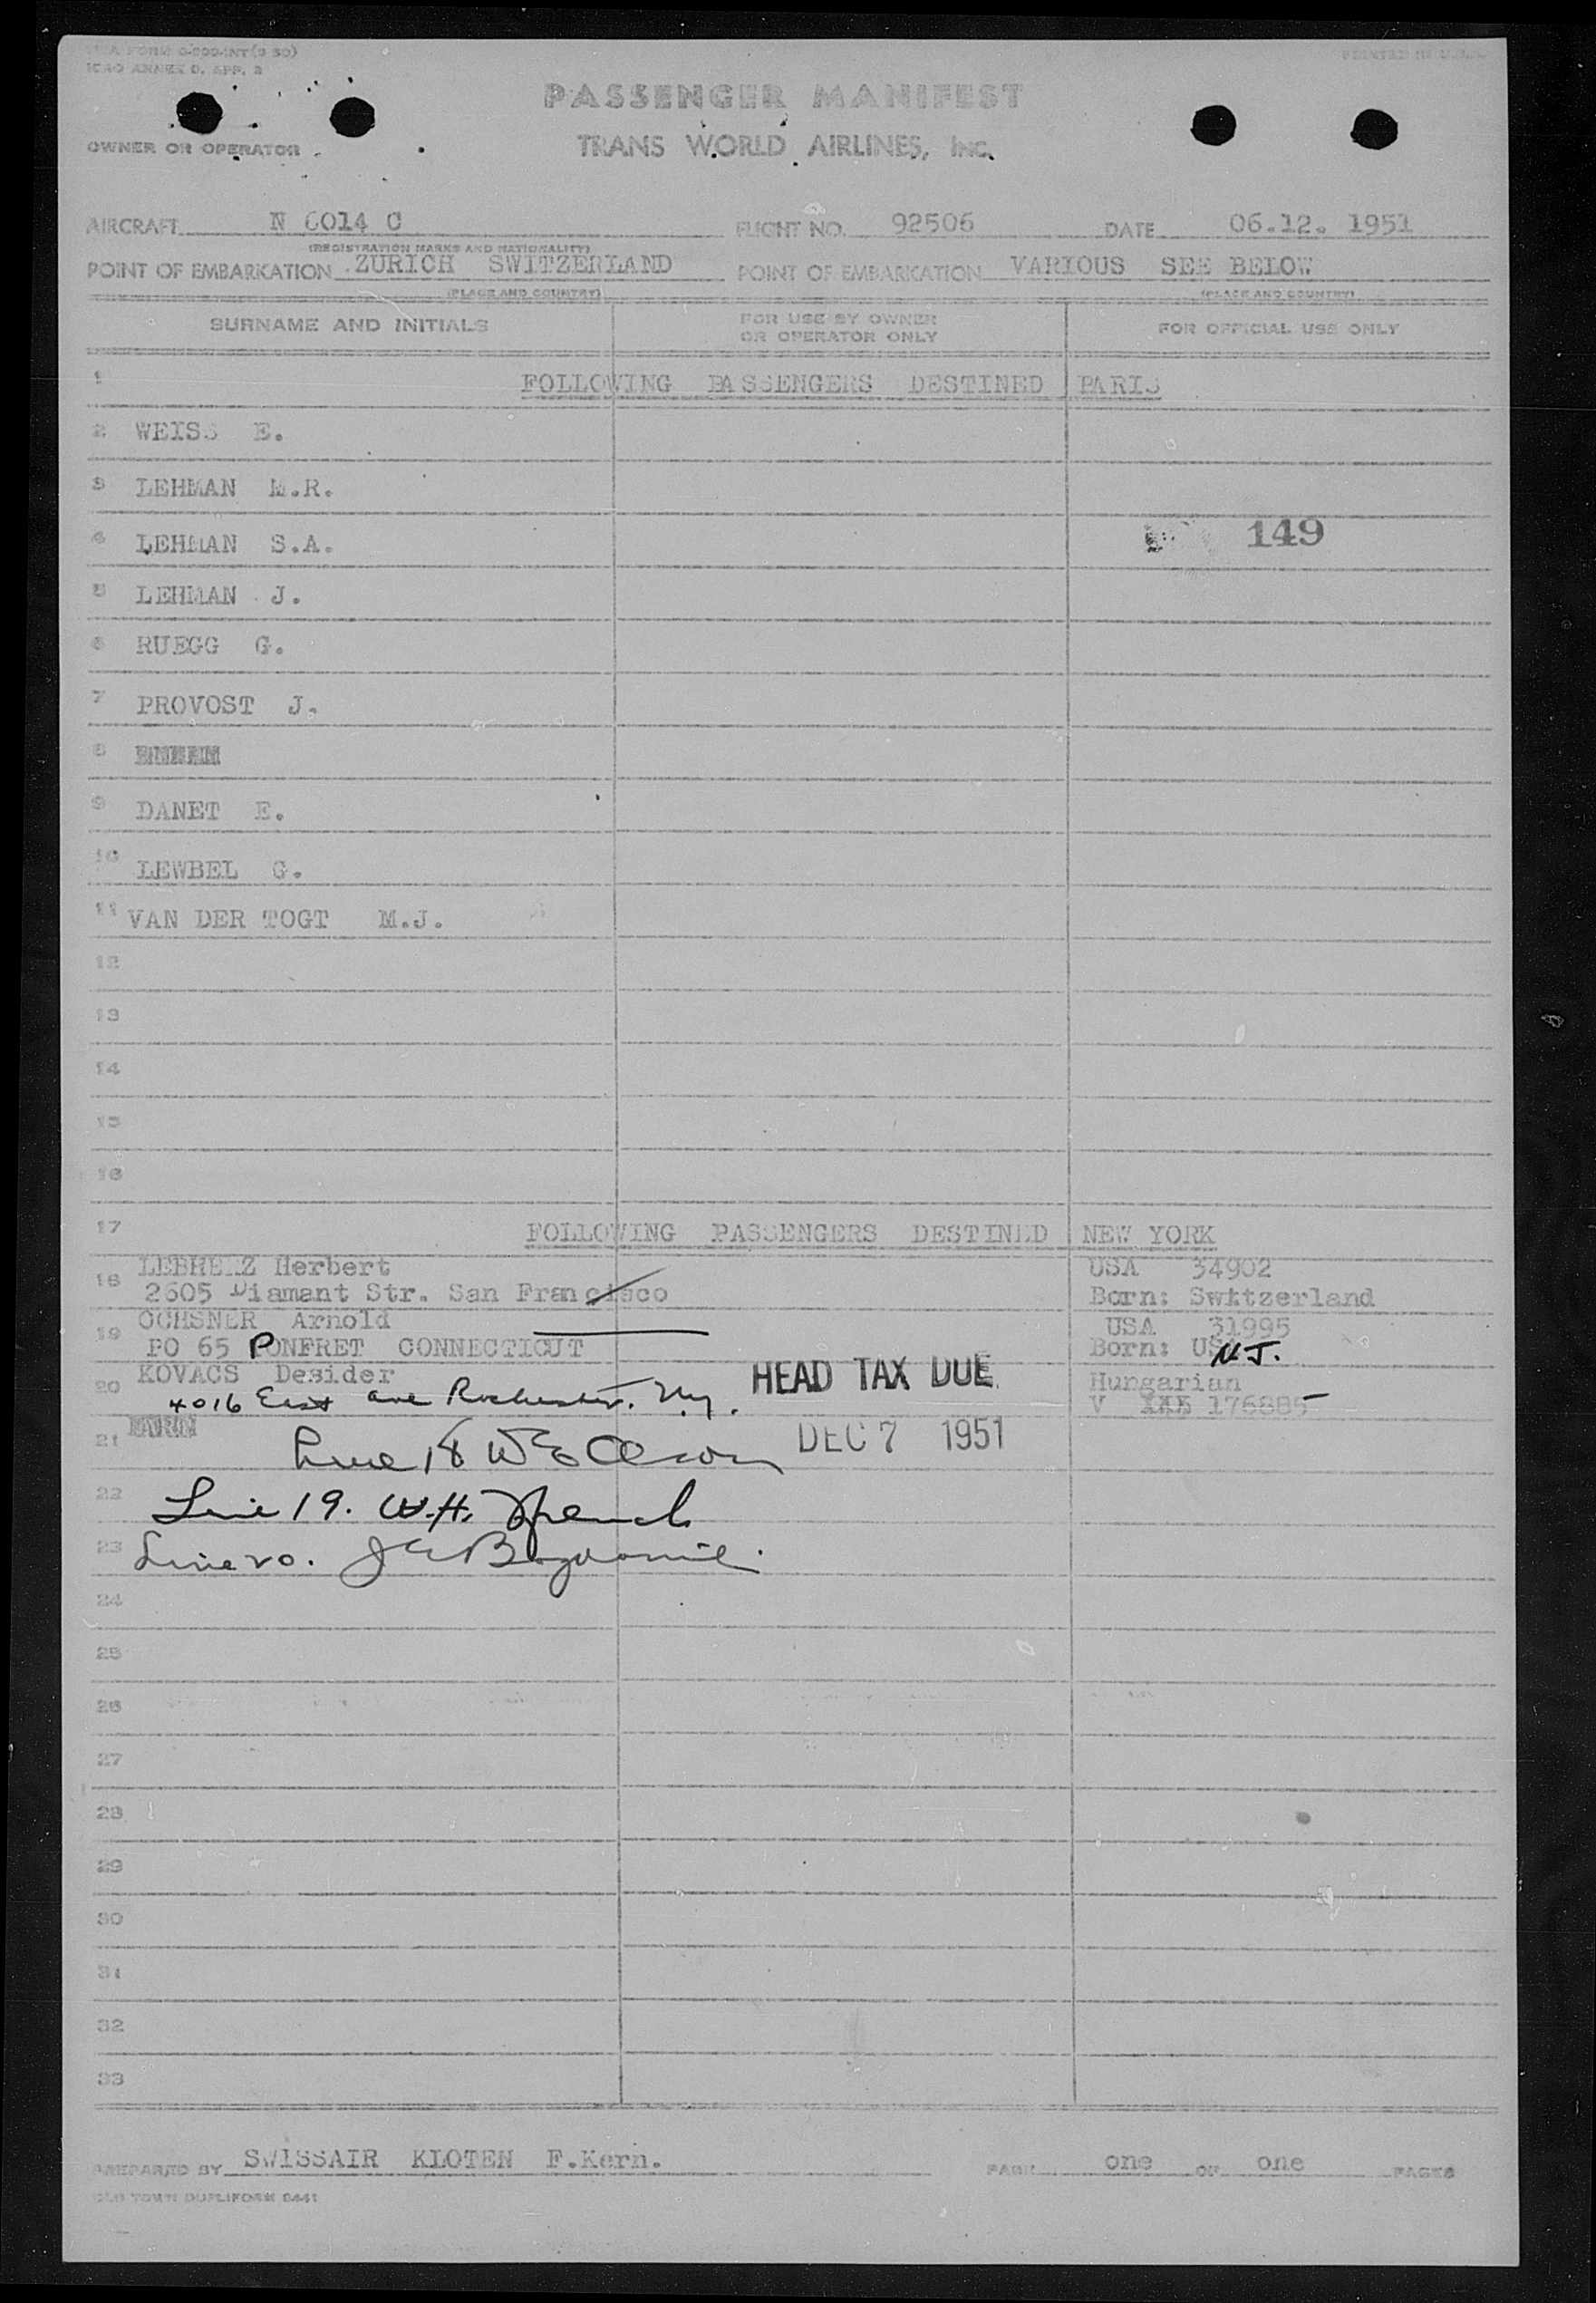 TWA FORM O-200-INT (9 50)
ICAO ANNEX 9, APP. 2
PRINTED IN U.S.A.
PASSENGER MANIFEST
OWNER OR OPERATOR
TRANS WORLD AIRLINES, INC.
AIRCRAFT N 6014 C FLIGHT NO. 92506 DATE 06.12. 1951
(REGISTRATION MARKS AND NATIONALITY)
POINT OF EMBARKATION ZURICH SWITZERLAND POINT OF EMBARKATION VARIOUS SEE BELOW
(PLACE AND COUNTRY) (PLACE AND COUNTRY)
SURNAME AND INITIALS FOR USE BY OWNER OR OPERATOR ONLY FOR OFFICIAL USE ONLY
1 FOLLOWING PASSENGERS DESTINED PARIS
2 WEISS E.
3 LEHMAN M.R.
4 LEHMAN S.A. 149
5 LEHMAN J.
6 RUEGG G.
7 PROVOST J.
8
9 DANET E.
10 LEWBEL G.
11 VAN DER TOGT M.J.
12
13
14
15
16
17 FOLLOWING PASSENGERS DESTINED NEW YORK
LEBHERZ Herbert USA 34902
18 2605 Diamant Str. San Francisco Born: Switzerland
OCHSNER Arnold USA 31995
19 PO 65 PONFRET CONNECTICUT Born: US N.J.
KOVACS Desider HEAD TAX DUE Hungarian
20 4016 East Ave Rochester, N.Y. V 176885
21 Line 18 DEC 7 1951
22 Line 19. W.H. French
23 Line 20.
24
25
26
27
28
29
30
31
32
33
PREPARED BY SWISSAIR KLOTEN F.Kern. PAGE one OF one PAGES
OLD TOWN DUPLIFORM 8441